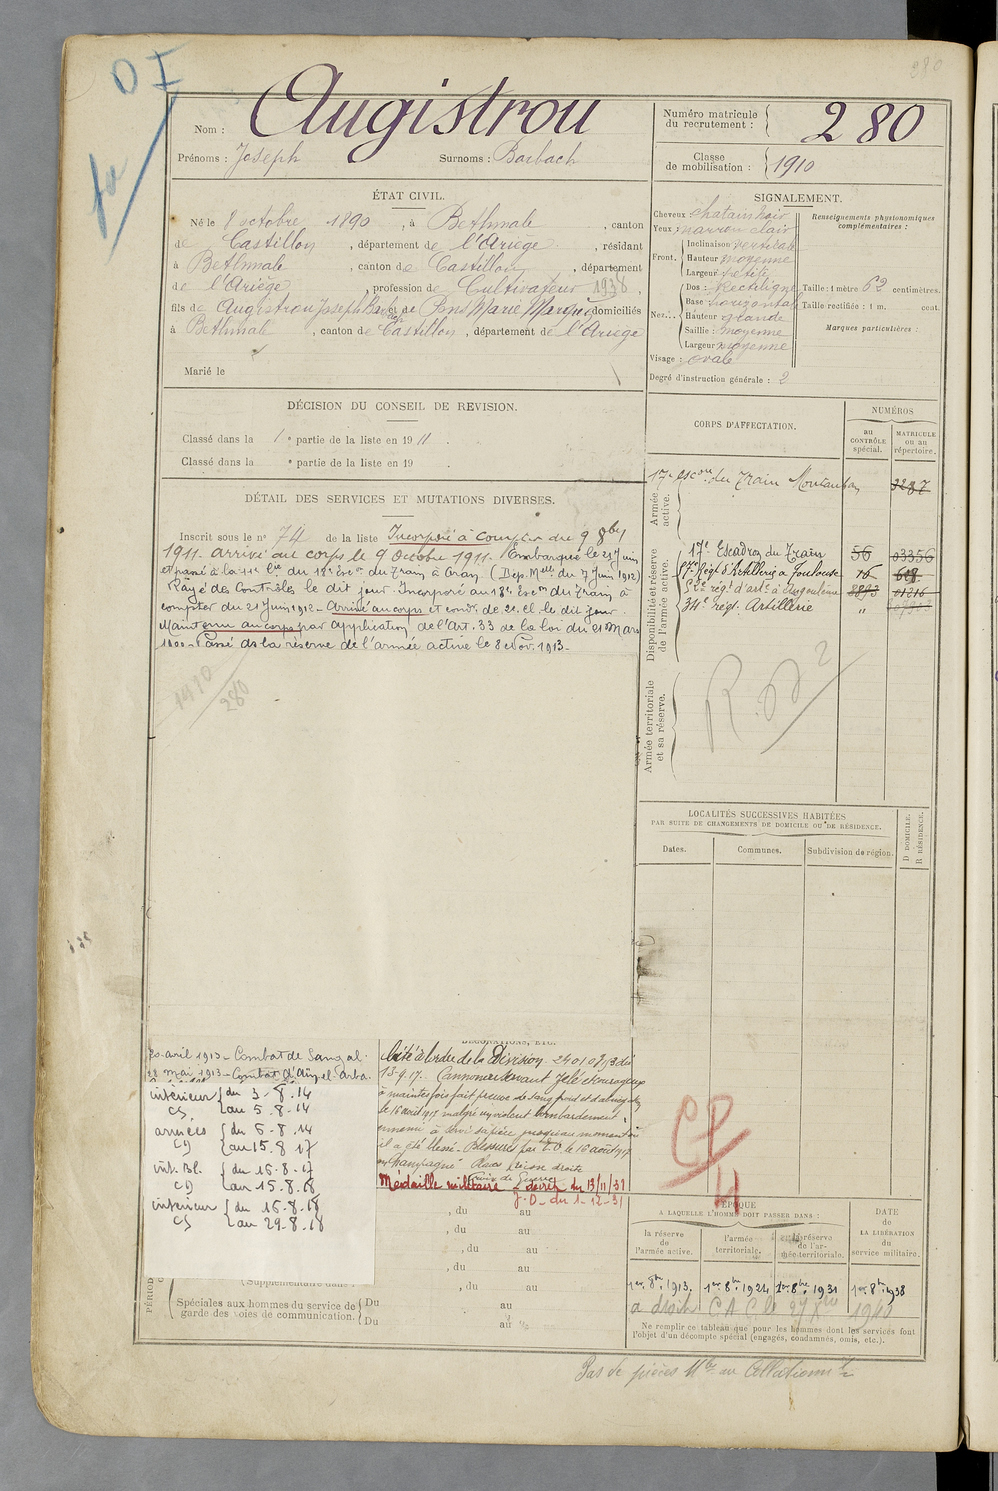 280
OI
Nom : Augistrou
Prénoms : Joseph Surnoms : Barbach
Numéro matricule du recrutement : 280
Classe de mobilisation : 1910
ÉTAT CIVIL.
Né le 8 octobre 1890, à Bethmale, canton
de Castillon, département de l'Ariège, résidant
à Bethmale, canton de Castillon, département
de l'Ariège, profession de Cultivateur 1938,
fils de Augistrou Joseph Barbach et de Pons Marie Marguerite domiciliés
à Bethmale, canton de Castillon, département de l'Ariège
Marié le
SIGNALEMENT.
Cheveux : chatain noir
Yeux : marron clair
Front. Inclinaison verticale
Hauteur moyenne
Largeur petite
Nez... Dos : Rectiligne
Base : horizontale
Hauteur grande
Saillie : moyenne
Largeur moyenne
Visage : ovale
Degré d'instruction générale : 2
Renseignements physionomiques complémentaires :
Taille : 1 mètre 62 centimètres.
Taille rectifiée : 1 m. cent.
Marques particulières :
DÉCISION DU CONSEIL DE REVISION.
Classé dans la 1e partie de la liste en 1911.
Classé dans la e partie de la liste en 19 .
DÉTAIL DES SERVICES ET MUTATIONS DIVERSES.
Inscrit sous le n° 74 de la liste Incorporé à compter du 9 8bre
1911. arrivé au corps le 9 octobre 1911. Embarqué le 21 juin
et passé à la 11e Cie du 18e Escon du Train à Oran (Dép. Mlle du 7 Juin 1912)
Rayé des Contrôles le dit jour. Incorporé au 18e Escon du Train à
compter du 21 Juin 1912 - Arrivé au corps et condr de 2e cl. le dit jour.
Maintenu au corps par application de l'Art. 33 de la loi du 21 Mars
1905 - Passé ds la réserve de l'armée active le 8 Nov. 1913 -
1910
280
CORPS D'AFFECTATION.
NUMÉROS
au CONTRÔLE spécial.
MATRICULE ou au répertoire.
Armée active.
17e Escon du Train Montauban 3237
Disponibilité et réserve de l'armée active.
17e Escadron du Train 56 03356
57e Régt d'Artillerie à Toulouse 16 618
52e régt d'arte à Angoulême 3893 01216
34e régt Artillerie "
Armée territoriale et sa réserve.
LOCALITÉS SUCCESSIVES HABITÉES
PAR SUITE DE CHANGEMENTS DE DOMICILE OU DE RÉSIDENCE.
Dates. Communes. Subdivision de région.
D DOMICILE.
R RÉSIDENCE.
20 avril 1913 - Combat de Sang al.
28 mai 1913 - Combat d'Aïn el Arba.
intérieur du 3-8-14
CS au 5-8-14
armées du 6-8-14
CD au 15.8.17
int. Bl. du 16-8-17
CD au 15.8.18
intérieur du 16-8-18
CS au 29-8-18
DÉCORATIONS, ETC.
Cité à l'ordre de la Division
13-9-17. Cannonier servant zélé et courageux
à maintes fois fait preuve de sang froid et d'abnégation
le 16 août 1917 malgré un violent bombardement
ennemi à servi sa pièce jusqu'au moment où
il a été blessé - Blessures par E.O. le 16 août 1917
en Champagne région droite
Croix de Guerre
Médaille militaire - décret du 13/11/31
J.O. du 1-12-31
CP
4
, du au
, du au
, du au
, du au
, du au
(Supplémentaire dans :
Spéciales aux hommes du service de garde des voies de communication. Du au
Du au
ÉPOQUE
A LAQUELLE L'HOMME DOIT PASSER DANS :
DATE DE LA LIBÉRATION du service militaire.
la réserve de l'armée active.
l'armée territoriale.
la réserve de l'armée territoriale.
1er 8bre 1913. 1er 8bre 1924 1er 8bre 1931 1er 8bre 1938
a droit C.A.C. le 27 Xbre 1940
Ne remplir ce tableau que pour les hommes dont les services font
l'objet d'un décompte spécial (engagés, condamnés, omis, etc.).
Pas de pièces